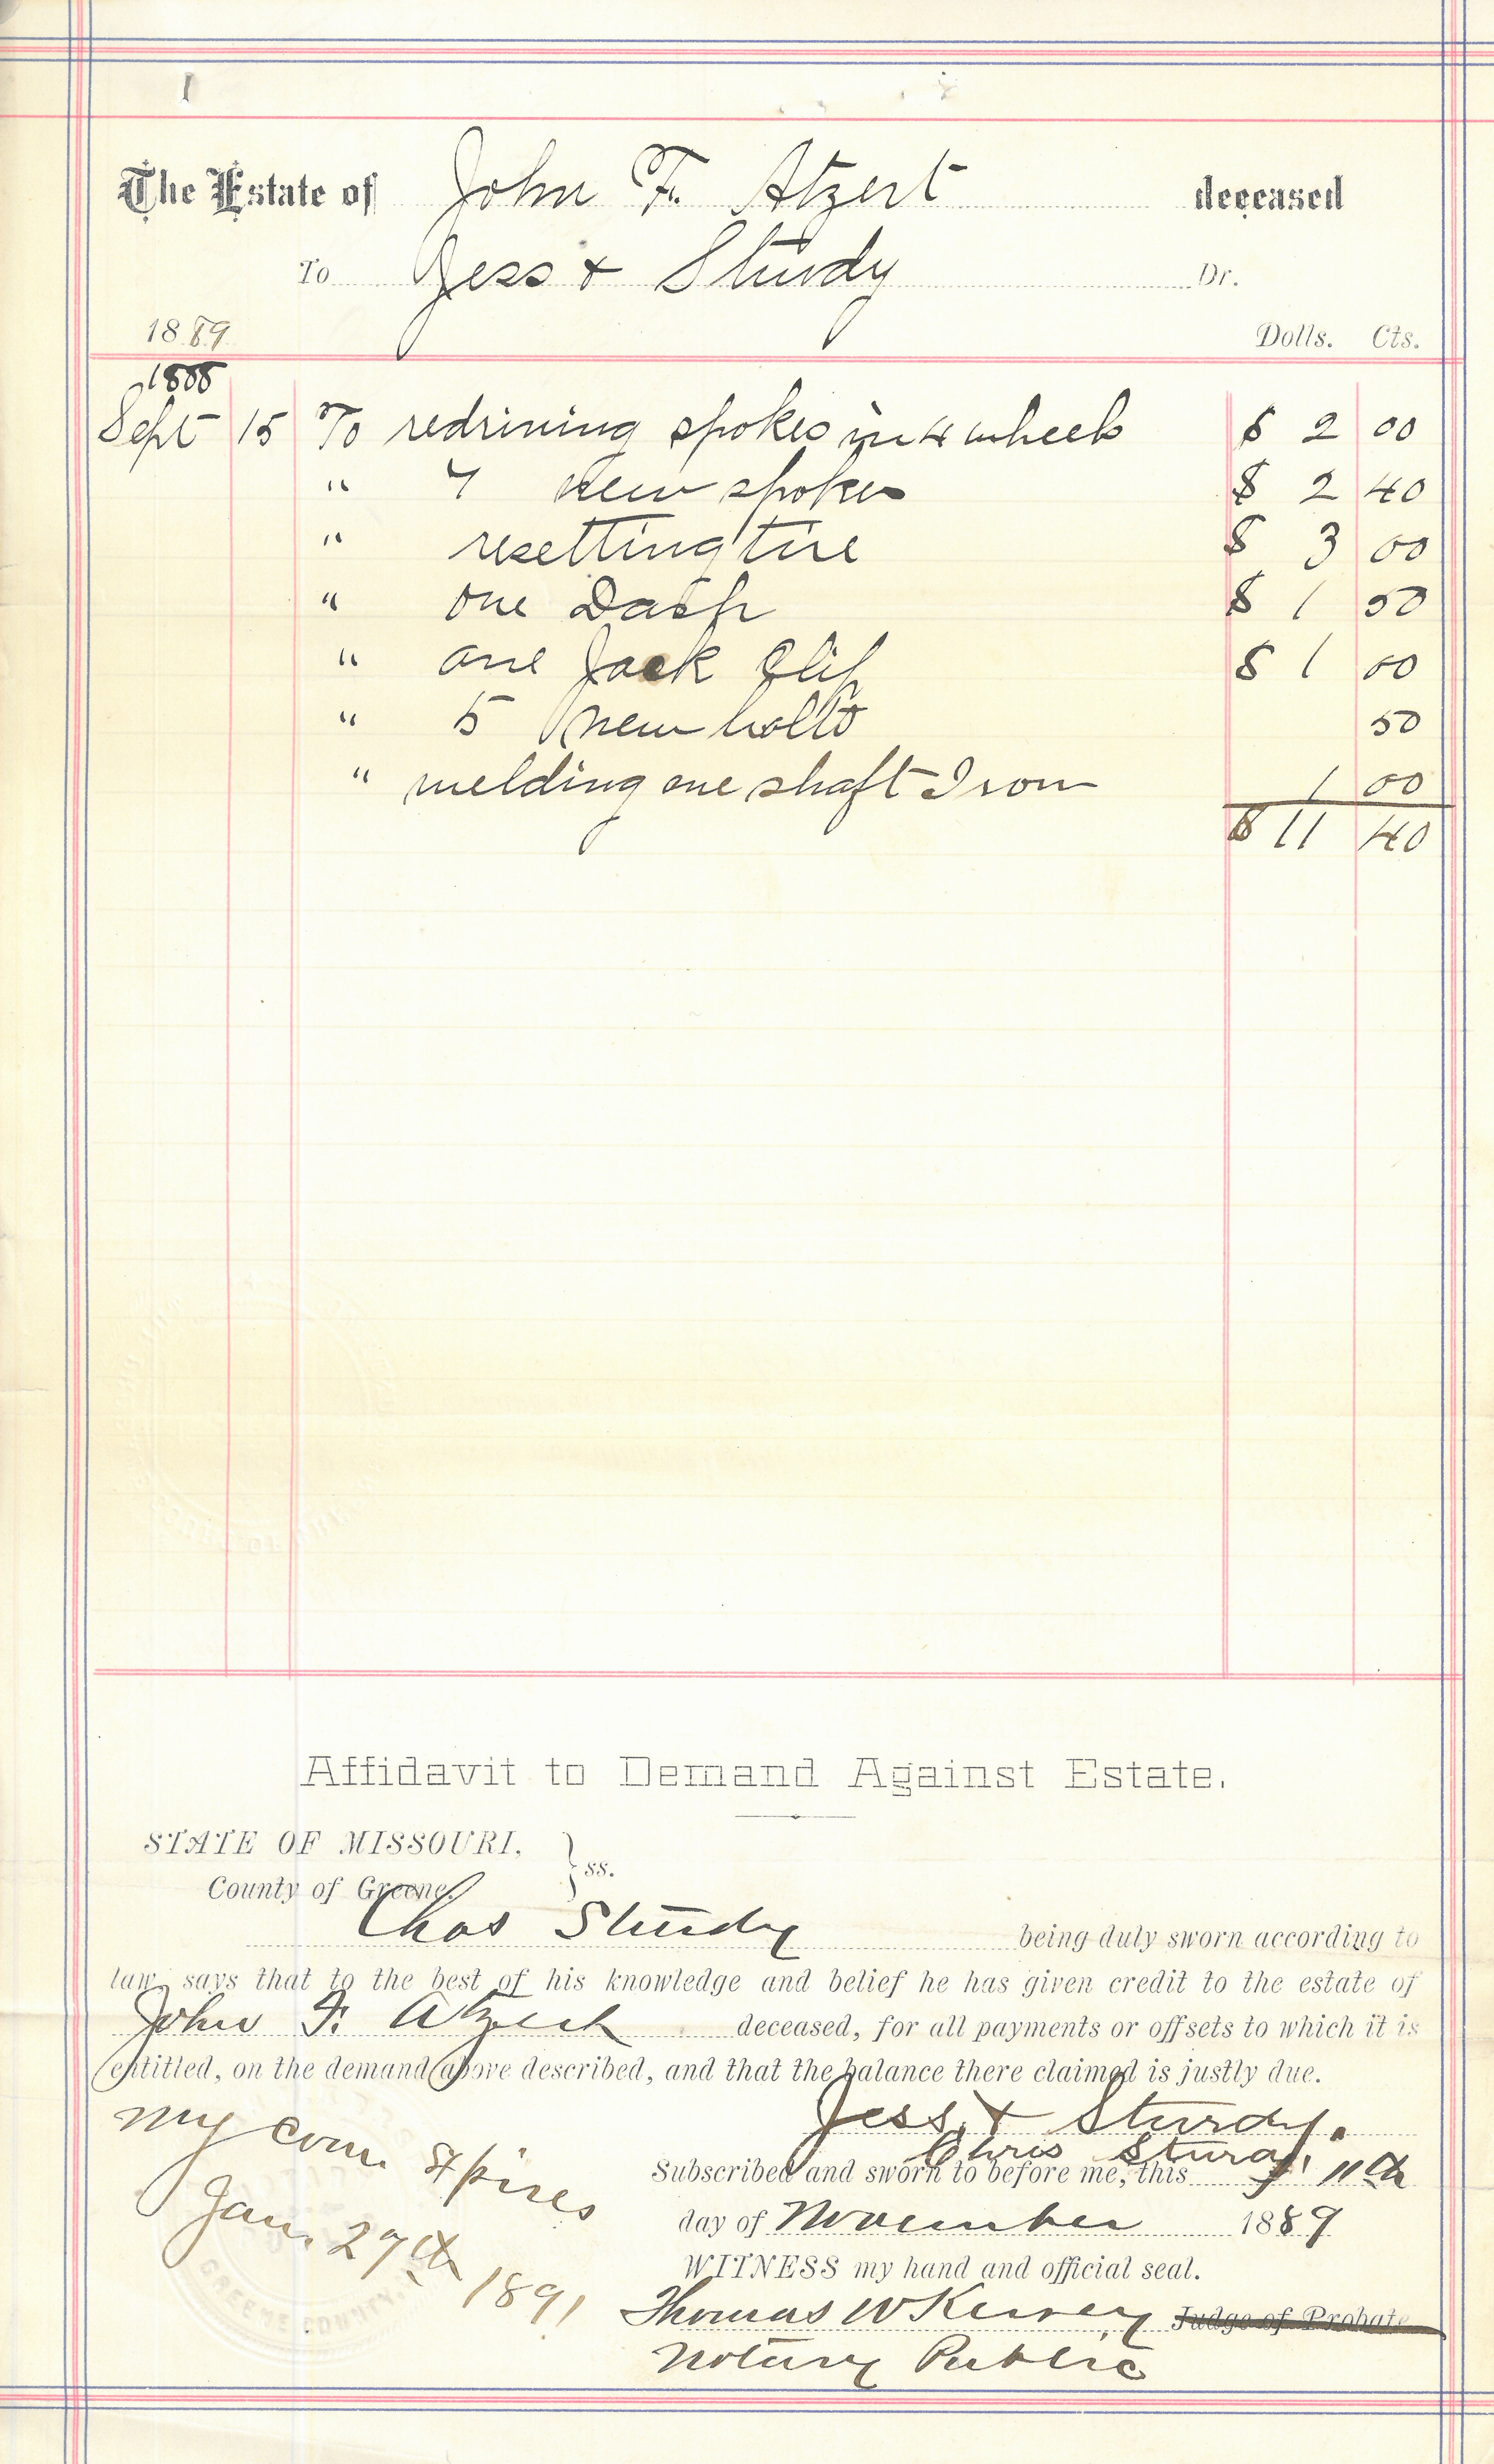 The Estate of John F. Atzert deceased
To Jess & Sturdy Dr.
1889 Dolls. Cts.
1888
Sept 15 To redrining spokes in 4 wheels $ 2 00
" 7 new spokes $ 2 40
" resetting tire $ 3 00
" one Dash $ 1 50
" one Jack Clip $ 1 00
" 5 new bolts 50
" welding one shaft Iron 1 00
$ 11 40
Affidavit to Demand Against Estate.
STATE OF MISSOURI, } ss.
County of Greene.
Chas Sturdy being duly sworn according to
law, says that to the best of his knowledge and belief he has given credit to the estate of
John F. Atzert deceased, for all payments or offsets to which it is
entitled, on the demand above described, and that the balance there claimed is justly due.
Jess & Sturdy.
Chris Sturdy
Subscribed and sworn to before me, this 11th
day of November 1889
WITNESS my hand and official seal.
Thomas W Kersey Judge of Probate
Notary Public
My com. Expires
Jan. 27th 1891
GREENE COUNTY